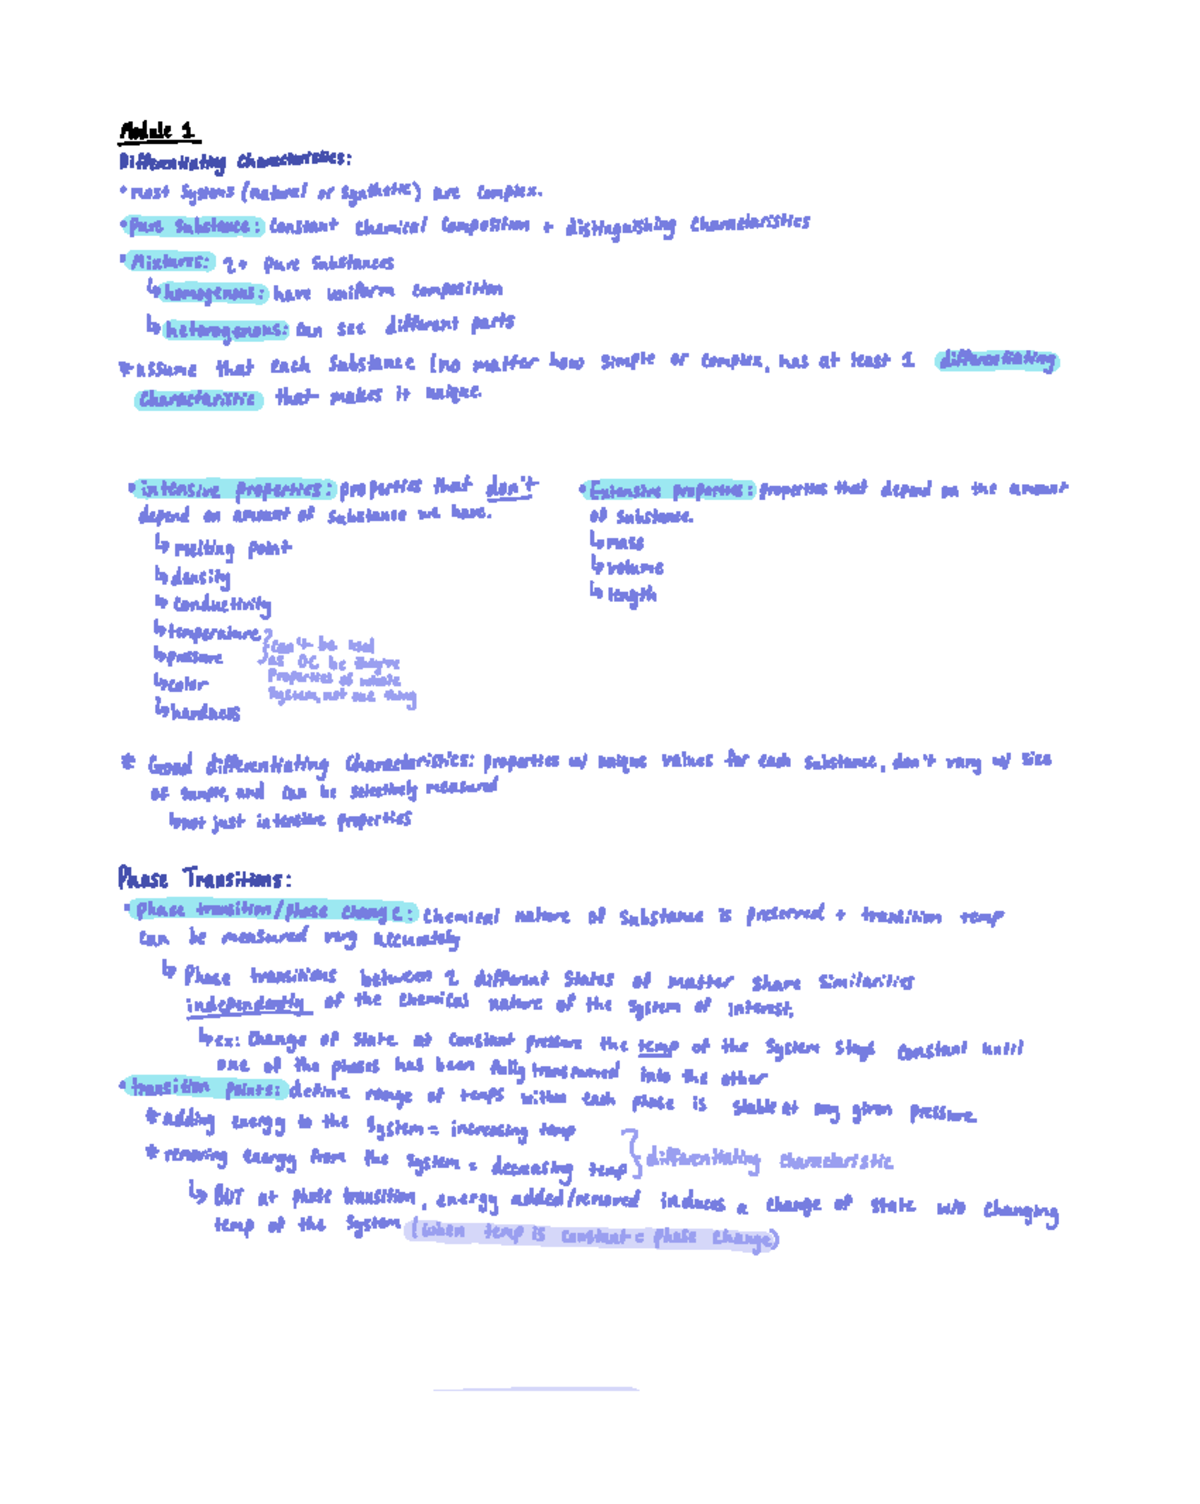 Module 1
Differentiating Characteristics:
• most Systems (natural or synthetic) are complex.
• pure substance: Constant Chemical Composition + distinguishing Characteristics
• Mixtures: 2+ pure substances
↳ homogenous: have uniform composition
↳ heterogenous: can see different parts
* assume that each substance (no matter how simple or complex, has at least 1 differentiating
Characteristic that makes it unique.
• intensive properties: properties that don't
depend on amount of substance we have.
↳ melting point
↳ density
↳ conductivity
↳ temperature
↳ pressure
↳ color
↳ hardness
} can't be used
as DC bc they're
Properties of whole
System, not one thing
• Extensive properties: properties that depend on the amount
of substance.
↳ mass
↳ volume
↳ length
* Good differentiating Characteristics: properties w/ unique values for each substance, don't vary w/ size
of sample, and can be selectively measured
↳ not just intensive properties
Phase Transitions:
• Phase transition/phase change: Chemical nature of substance is preserved + transition temp
can be measured very accurately
↳ Phase transitions between 2 different states of matter share similarities
independently of the chemical nature of the system of interest.
↳ ex: Change of state at constant pressure the temp of the system stays constant until
one of the phases has been fully transformed into the other
• transition points: define range of temps within each phase is stable at any given pressure
* adding energy to the system = increasing temp
* removing energy from the system = decreasing temp
} differentiating characteristic
↳ BUT at phase transition, energy added/removed induces a change of state w/o changing
temp of the system (when temp is constant = phase change)